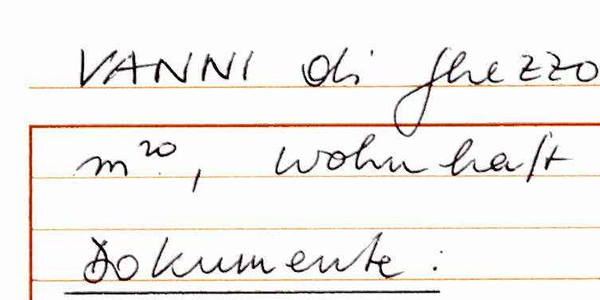 VANNI di Ghezzo
m²⁰, wohnhaft
Dokumente: